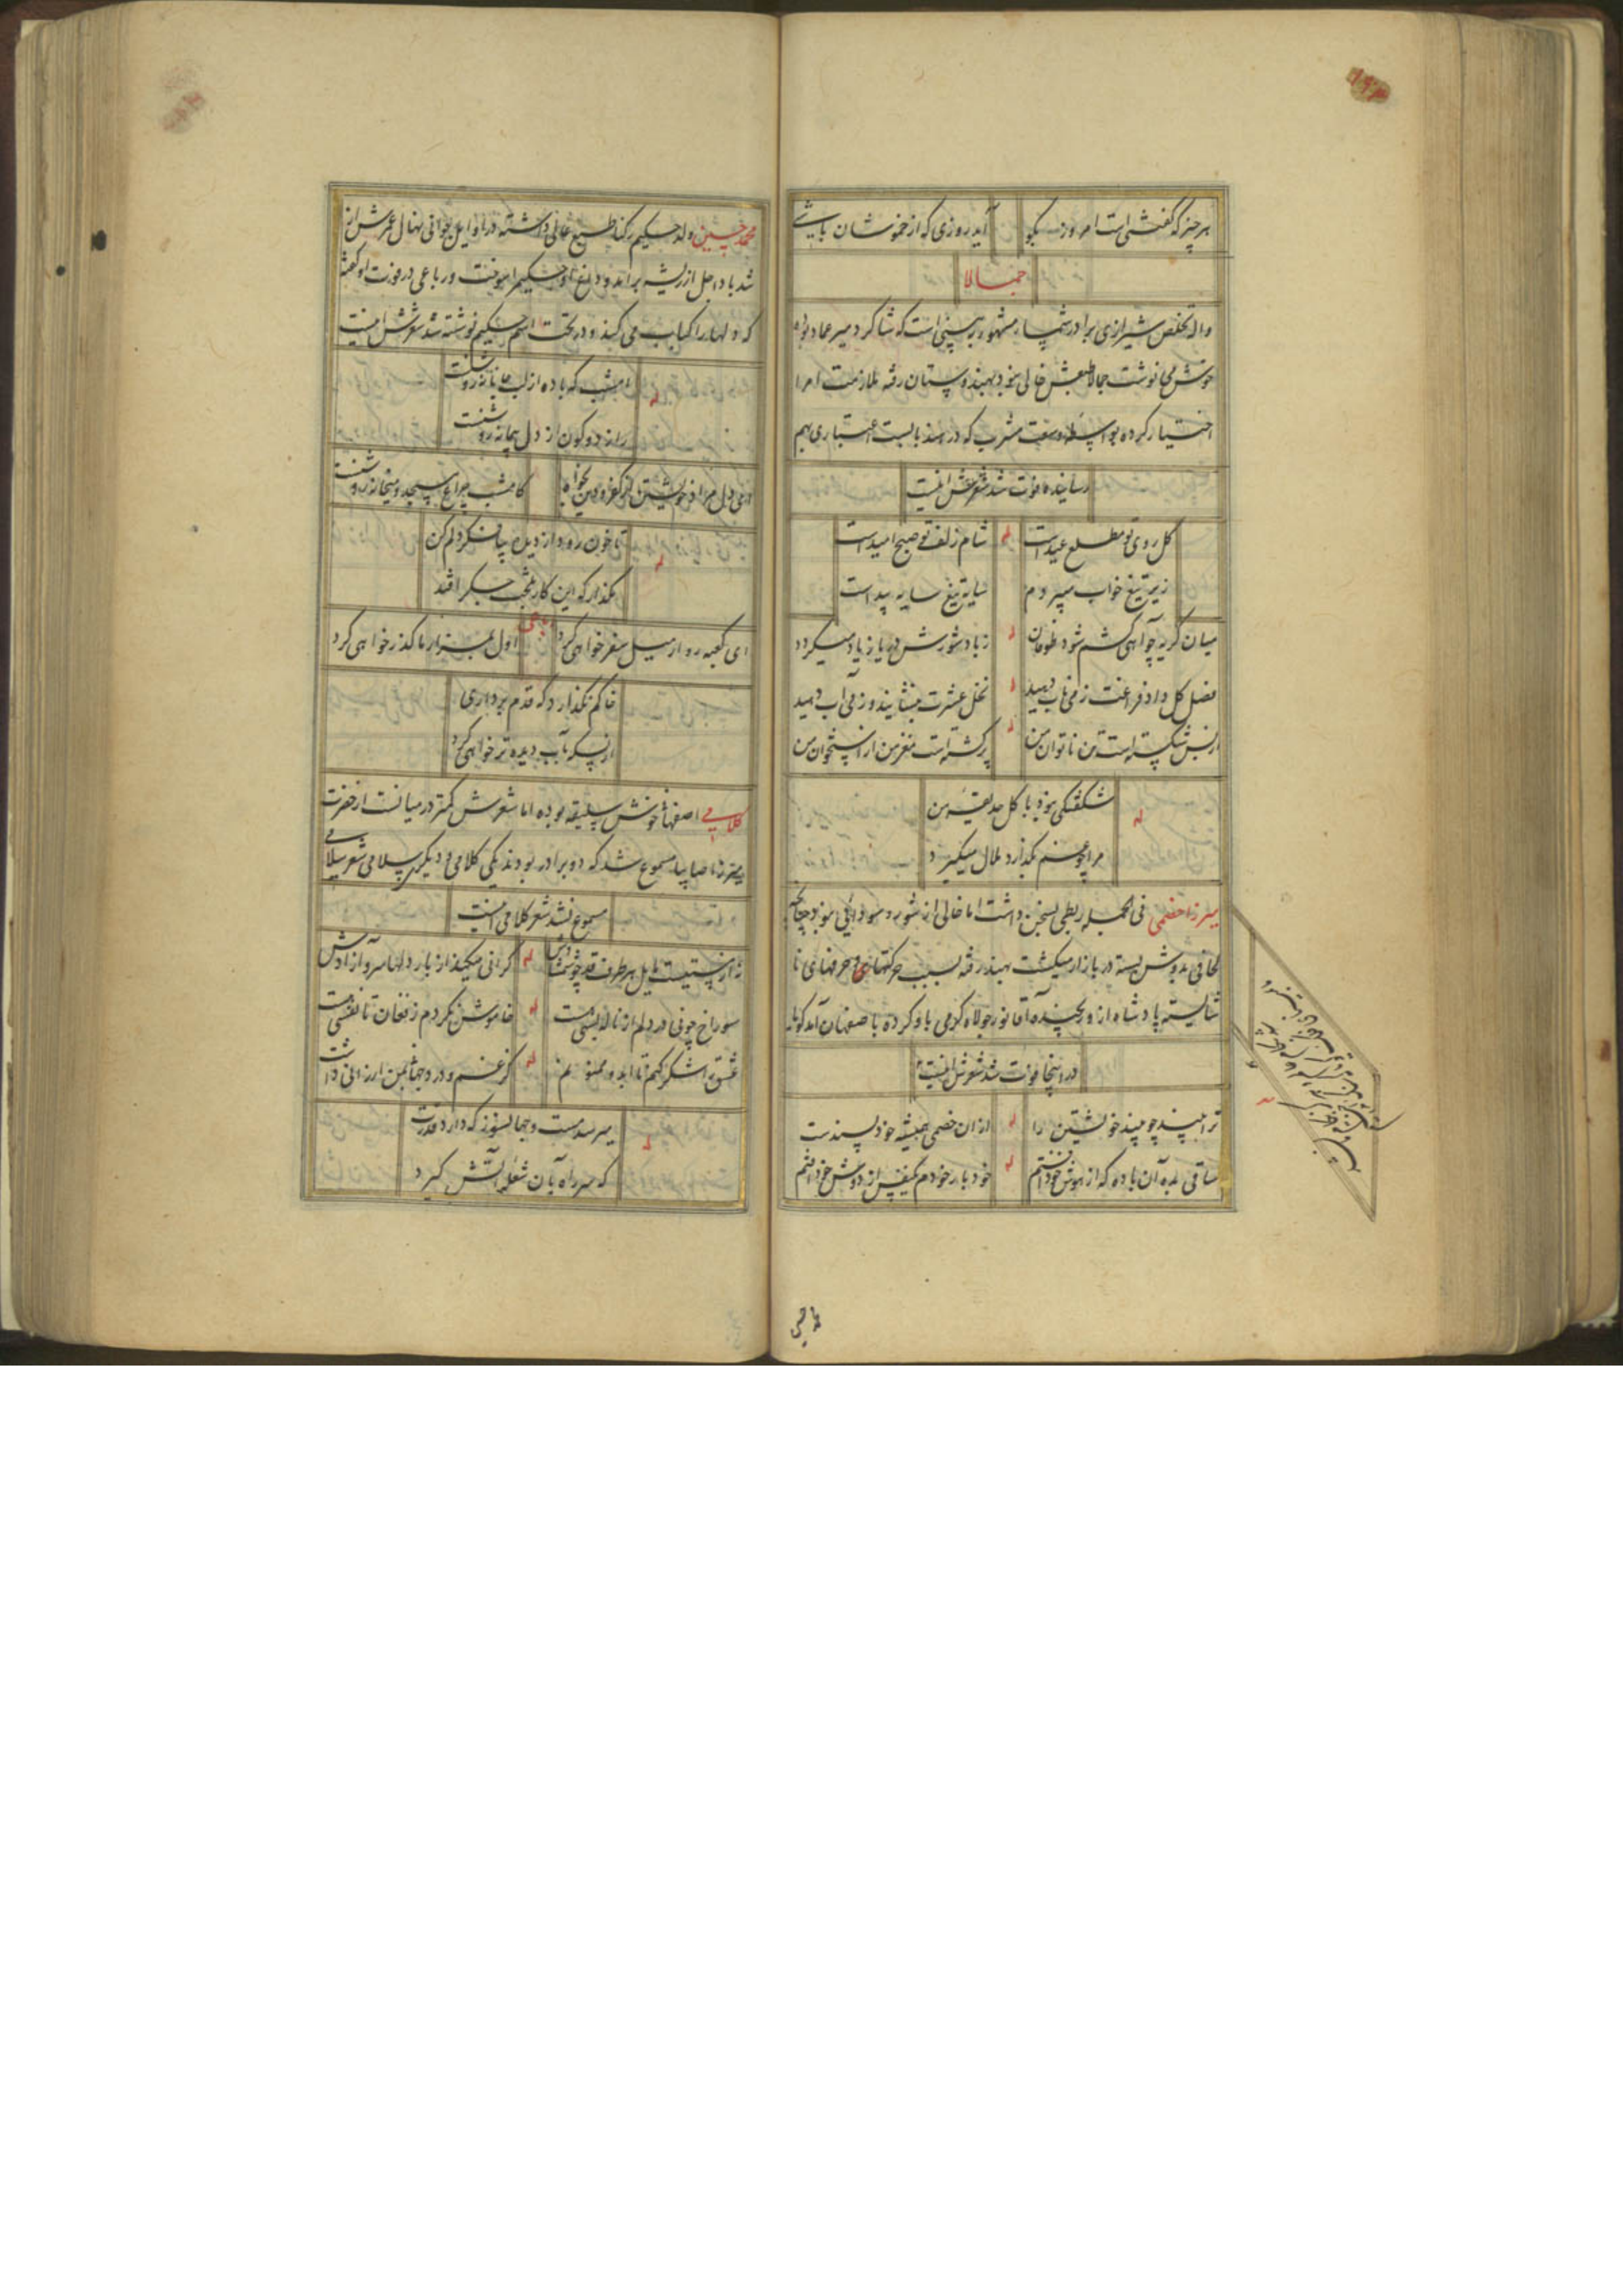 هر چیز که گفتنی است امروز بگو
آید روزی که از خموشان باشی
جمالا
واله تخلص شیرازی برادر مشهور به سینی است که شاگرد میر عماد بوده
خوش می نوشت جمالا طبعش خالی نبود بهندوستان رفته ملازمت امرا
اختیار کرده بواسطه وسعت مشرب که در هند بابست اعتباری بهم
رسانیده فوت شد شعرش اینست
گل روی تو مطلع عید است
له
شام زلف تو صبح امید است
زیر تیغ خواب میبردم
سایه تیغ سایه بید است
میان گریه چو آهی کشم شود طوفان
له
ز باد شورش دریا زیاد میگردد
فصل گل داد فراغت ز می ناب دهید
له
نخل عشرت بنشانید و ز می آب دهید
از بس شکسته است تن ناتوان من
له
پر گشته است مغز من از استخوان من
شگفتگی نبود با گل حدیقه من
له
مرا چو غنچه بگذارد ملال میگیرد
میرزا خصمی فی الجمله ربطی بسخن داشت اما خالی از شور و سودایی نبود چنانچه
لحافی بدوش بسته در بازار میگشت بهند رفته بسبب حرکتهای و حرفهای نا
شایسته پادشاه ازو رنجیده آقا نور جولاه گرمی باو کرده باصفهان آمد گویا
در اینجا فوت شد شعرش اینست
ترا بیند چو بیند خویشتن را
له
از آن خصمی همیشه خود پسند است
ساقی بده آن باده که از هوش خود افتم
له
خود بار خودم یکنفس از دوش خود افتم
محمد حسین ولد حکیم رکنا طبع عالی داشته در اوایل جوانی نهال عمرش از
شد باد اجل از ریشه برآمد و داغ او حکیم را سوخت و رباعی در فوت او گفته
که دلها را کباب می کند و در تحت اسم حکیم نوشته شد شعرش اینست
امشب که باده از لب جانانه روشنست
له
راز دو کون از دل پیمانه روشنست
ای دل مراد خویشتن از کفر و دین بخواه
کامشب چراغ مسجد و میخانه روشنست
تا خون رود از دیده پیاله نگردلم کن
له
مگذار که این کار بلخت جگر افتد
ای کعبه رو ار میل سفر خواهی کرد
رباعی
اول بمزار ما گذر خواهی کرد
خاکم نگذارد که قدم برداری
از بسکه بآب دیده تر خواهی کرد
کلامی اصفهانی خوش سلیقه بوده اما شعرش کمتر در میانست از حضرت
میرزا صایبا مسموع شد که دو برادر بودند یکی کلامی و دیگری سلامی شعر سلامی
مسموع نشد شعر کلامی اینست
نه از مستیست مایل هر طرف قد چو شمشادش
له
گرانی میکند از بار دلها سرو آزادش
سوراخ چو نی در دلم از ناله بسی هست
له
خاموش نگردم ز فغان تا نفسی هست
عشق را شکر کنم تا ابد و ممنونم
له
گر غم و درد جهان بمن ارزانی داشت
میرسد مست و جهانسوز که دارد قدرت
له
که سر راه بآن شعله آتش گیرد
محمد حسین